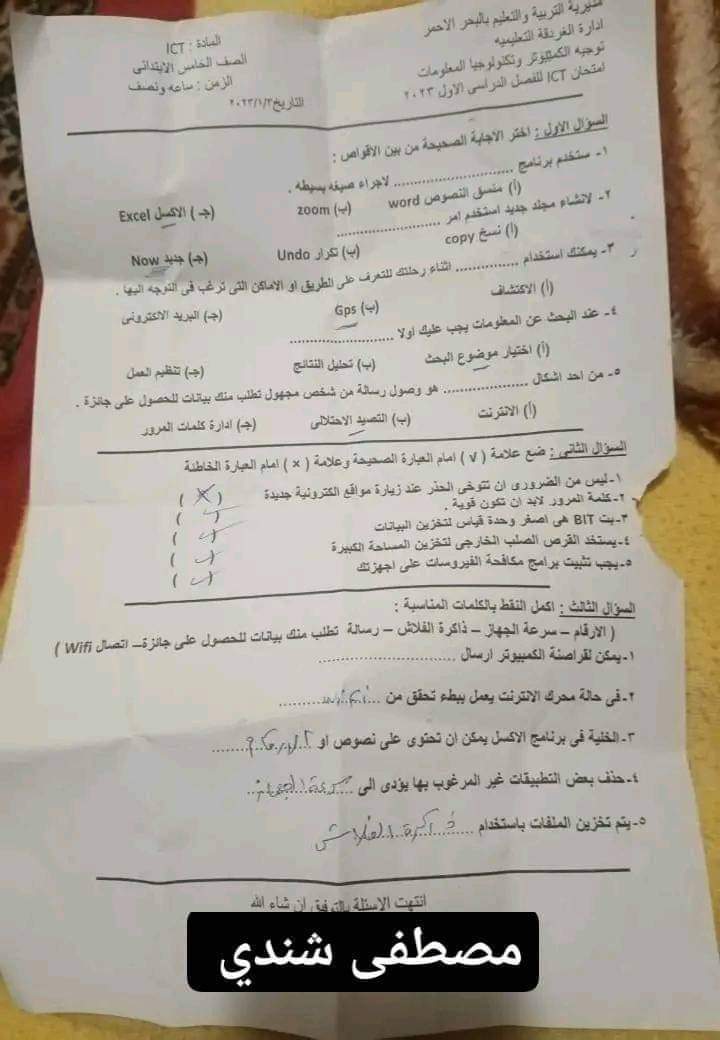 مديرية التربية والتعليم بالبحر الاحمر
ادارة الغردقة التعليميه
توجيه الكمبيوتر وتكنولوجيا المعلومات
امتحان ICT للفصل الدراسى الاول ٢٠٢٣
المادة : ICT
الصف الخامس الابتدائى
الزمن : ساعه ونصف
التاريخ ٢٠٢٣/١/٣
السؤال الاول : اختر الاجابة الصحيحة من بين الاقواص :
١- ستخدم برنامج .................... لاجراء صيغه بسيطه .
(أ) منسق النصوص word (ب) zoom (جـ) الاكسل Excel
٢- لانشاء مجلد جديد استخدم امر ....................
(أ) نسخ copy (ب) تكرار Undo (جـ) جديد Now
٣- يمكنك استخدام ............ اثناء رحلتك للتعرف على الطريق او الاماكن التى ترغب فى التوجه اليها .
(أ) الاكتشاف (ب) Gps (جـ) البريد الاكترونى
٤- عند البحث عن المعلومات يجب عليك اولا ....................
(أ) اختيار موضوع البحث (ب) تحليل النتائج (جـ) تنظيم العمل
٥- من احد اشكال ................ هو وصول رسالة من شخص مجهول تطلب منك بيانات للحصول على جائزة .
(أ) الانترنت (ب) التصيد الاحتلالى (جـ) ادارة كلمات المرور
السؤال الثانى : ضع علامة ( √ ) امام العبارة الصحيحة وعلامة ( × ) امام العبارة الخاطئة
١-ليس من الضرورى ان تتوخى الحذر عند زيارة مواقع الكترونية جديدة ( × )
٢-كلمة المرور لابد ان تكون قوية . ( ✓ )
٣-بت BIT هى اصغر وحدة قياس لتخزين البيانات ( ✓ )
٤-يستخد القرص الصلب الخارجى لتخزين المساحة الكبيرة ( ✓ )
٥-يجب تثبيت برامج مكافحة الفيروسات على اجهزتك ( ✓ )
السؤال الثالث : اكمل النقط بالكلمات المناسبة :
( الارقام – سرعة الجهاز – ذاكرة الفلاش – رسالة تطلب منك بيانات للحصول على جائزة – اتصال Wifi )
١-يمكن لقراصنة الكمبيوتر ارسال ........................
٢-فى حالة محرك الانترنت يعمل ببطء تحقق من ....................
٣-الخلية فى برنامج الاكسل يمكن ان تحتوى على نصوص او الارقام
٤-حذف بعض التطبيقات غير المرغوب بها يؤدى الى سرعة الجهاز
٥-يتم تخزين الملفات باستخدام ذاكرة الفلاش
انتهت الاسئلة بالتوفيق ان شاء الله
مصطفى شندي